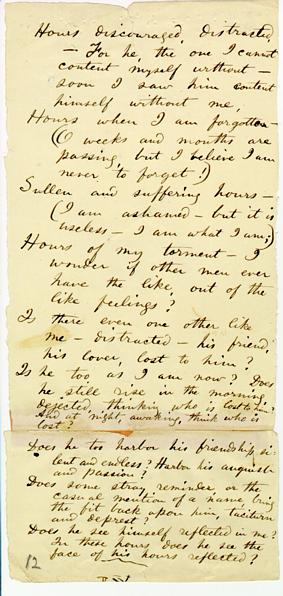 Hours discouraged, distracted,
— For he, the one I cannot
content myself without —
soon I saw him content
himself without me,
Hours when I am forgotten —
(O weeks and months are
passing, but I believe I am
never to forget!)
Sullen and suffering hours —
(I am ashamed — but it is
useless — I am what I am;)
Hours of my torment — I
wonder if other men ever
have the like, out of the
like feelings?
Is there even one other like
me — distracted — his friend,
his lover, lost to him?
Is he too as I am now? Does
he still rise in the morning,
dejected, thinking who is lost to him?
And at night, awaking, think who is
lost?
Does he too harbor his friendship si-
lent and endless? Harbor his anguish
and passion?
Does some stray reminder, or the
casual mention of a name, bring
the fit back upon him, taciturn
and deprest?
Does he see himself reflected in me?
In these hours does he see the
face of his hours reflected?
12